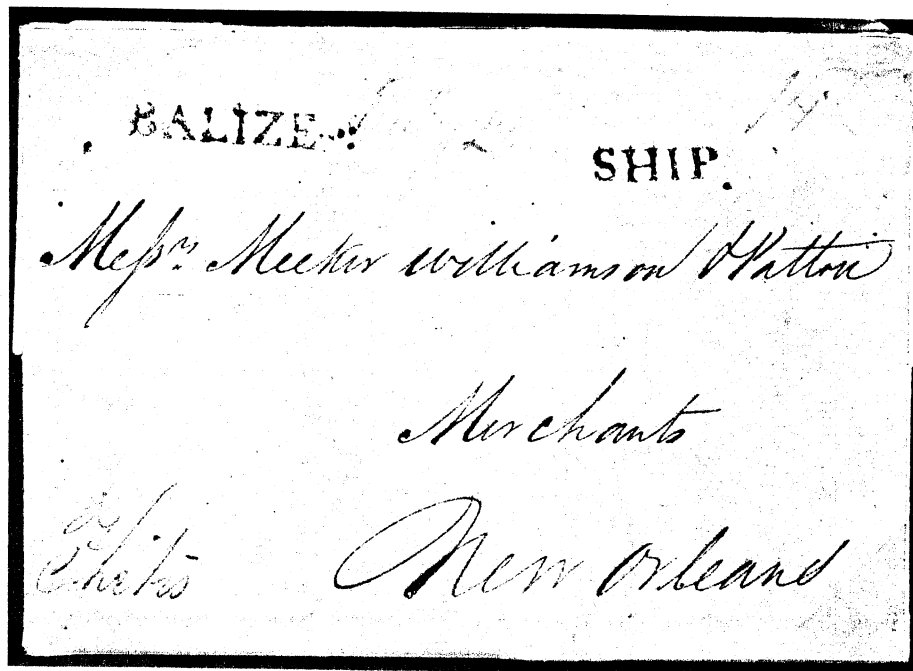 BALIZE.
SHIP.
Messrs Meeker Williamson & Patton
Merchants
New Orleans